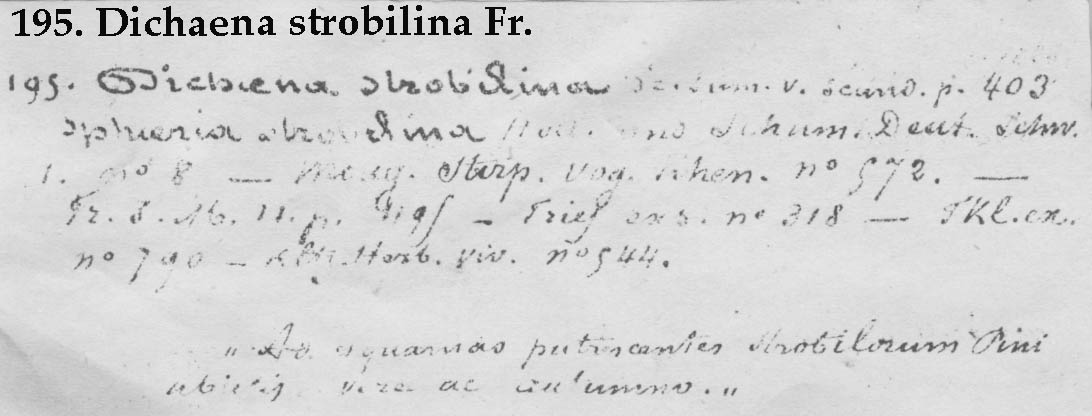 195. Dichaena strobilina Fr.
195. Dichaena strobilina v. scand. p. 403
Sphaeria strobilina Schum. Deut. Schw.
1. nº 8 — Moug. Stirp. Vog. Rhen. nº 572. —
Fr. S. M. 11. p. 495 — exs. nº 318 — Fkl. ex.
nº 790 — Herb. viv. nº 544.
„ Ad squamas putrescentes strobilorum Pini
abietis vere ac autumno. „